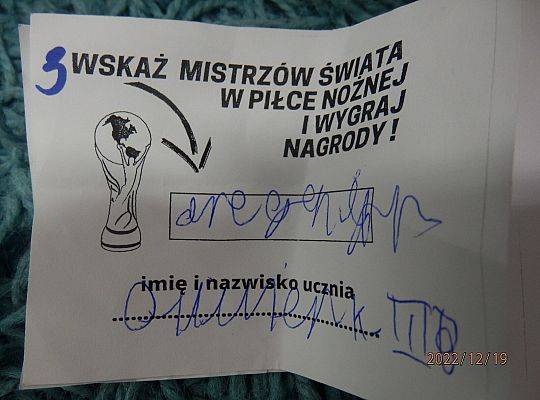 3 WSKAŻ MISTRZÓW ŚWIATA
W PIŁCE NOŻNEJ
I WYGRAJ
NAGRODY!
imię i nazwisko ucznia
2022/12/19